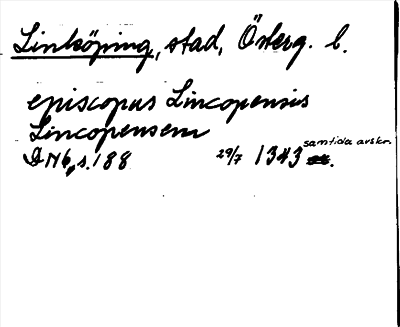 Linköping, stad, Österg. l.
episcopus Lincopensis
Lincopensem
samtida avskr.
DN6, s. 188 29/7 1343